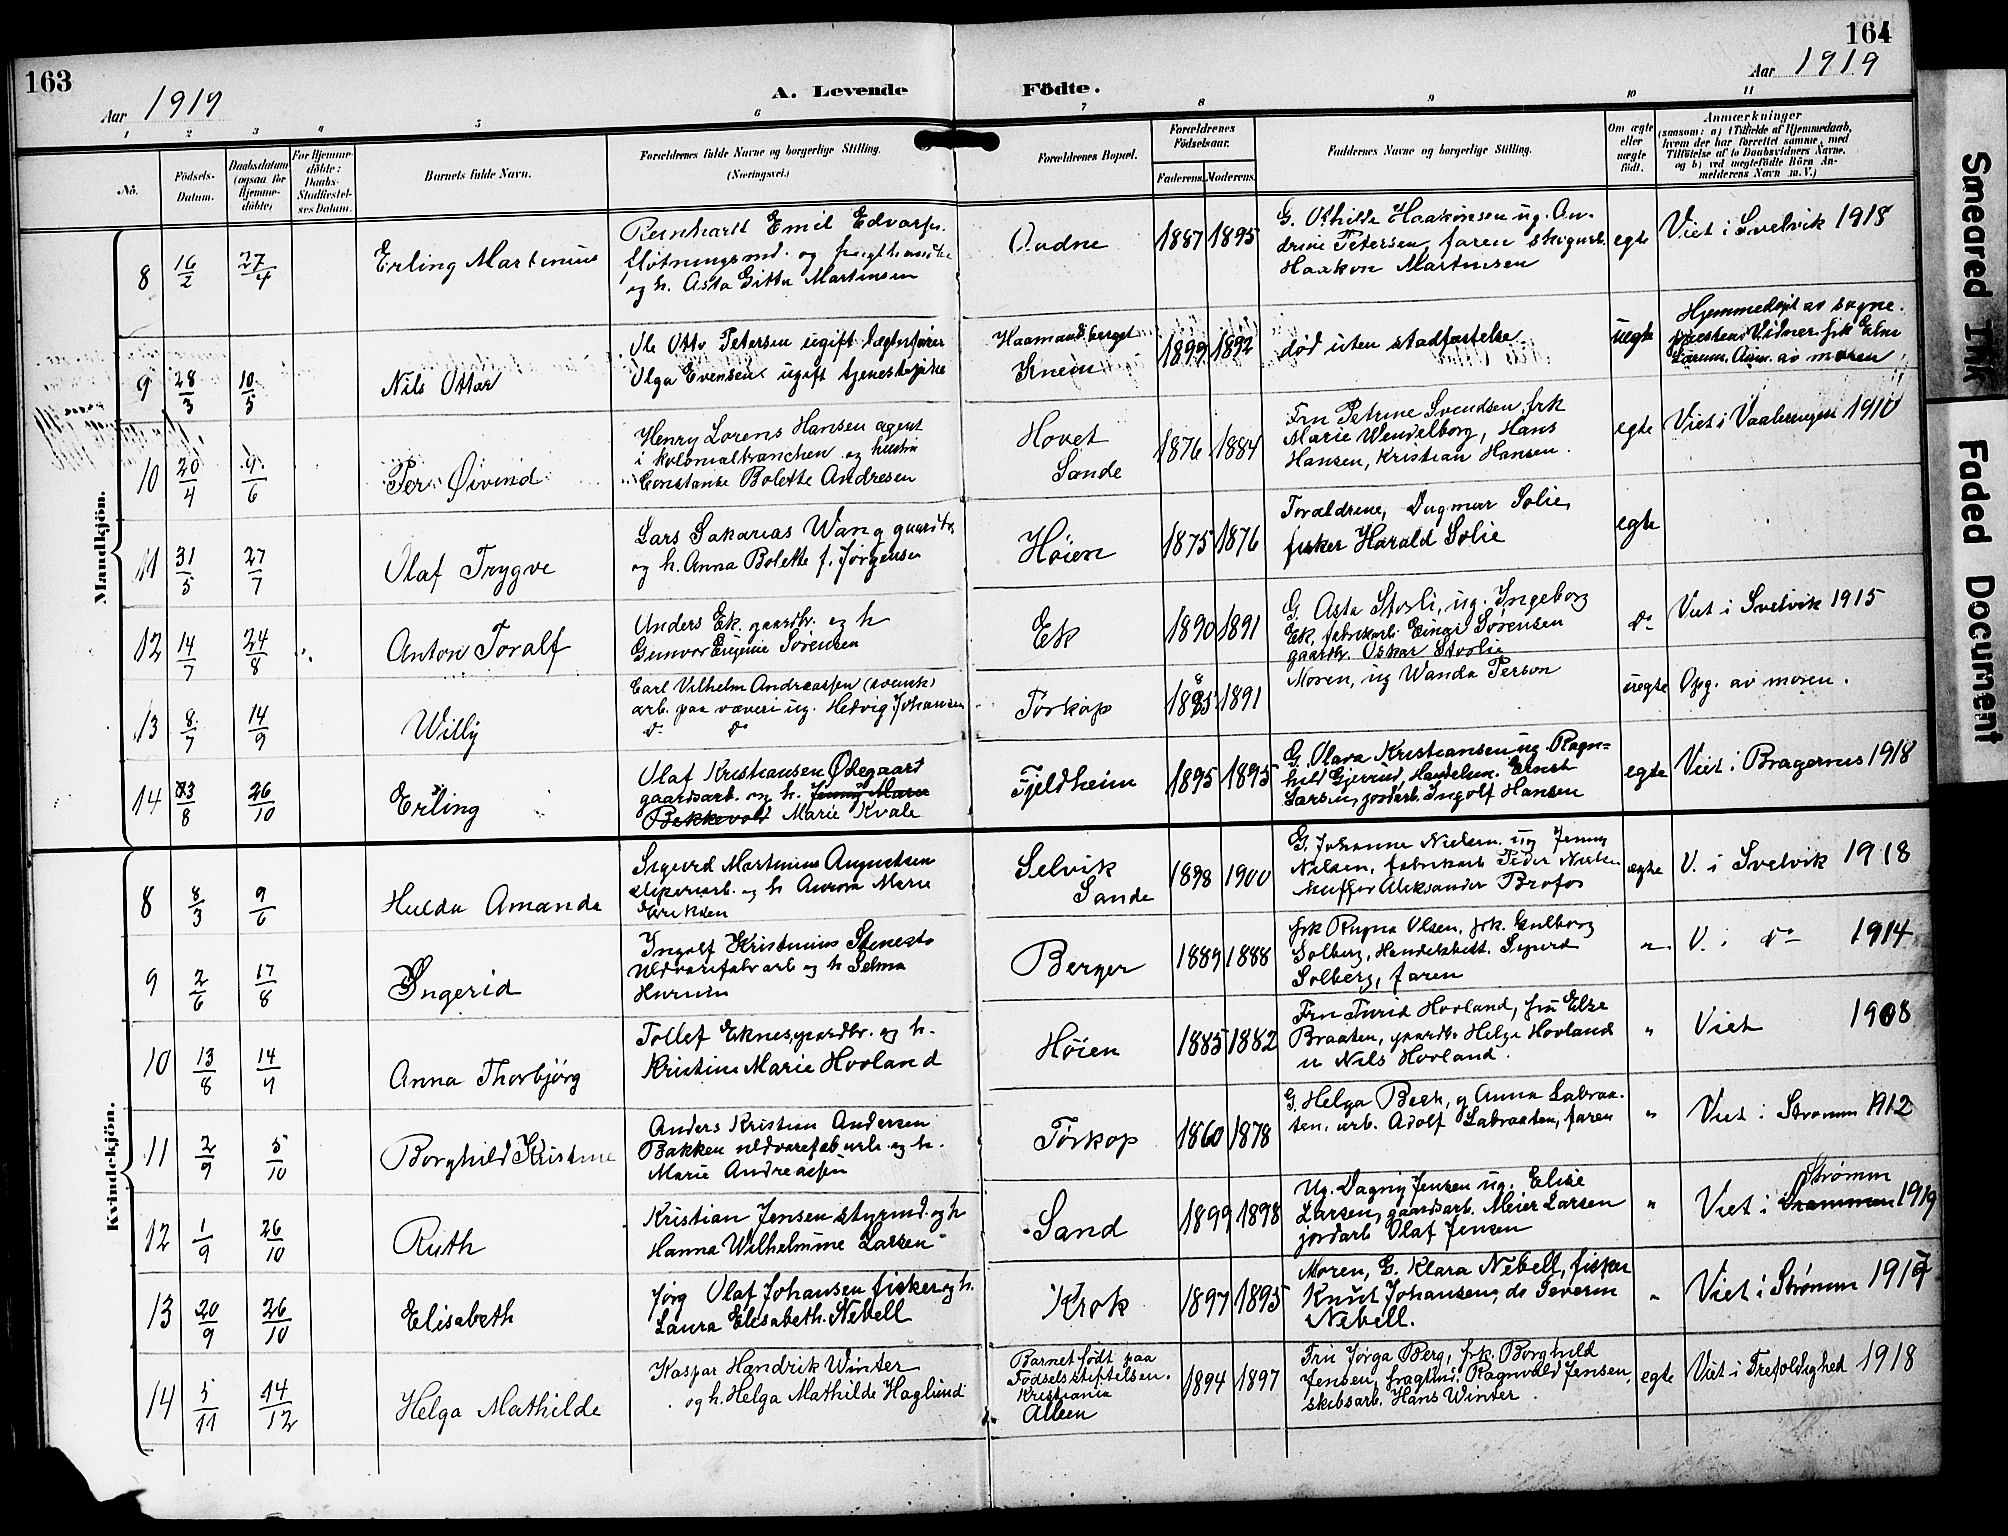 163
Aar 1919
A. Levende
Födte.
Aar 1919
164
1 2 3 4 5 6 7 8 9 10 11
No.
Födsels-
Datum.
Daabsdatum
(ogsaa for
Hjemme-
döbte)
For Hjemme-
döbte:
Daabs-
Stadfæstel-
ses Datum.
Barnets fulde Navn.
Forældrenes fulde Navne og borgerlige Stilling.
(Næringsvei.)
Forældrenes Bopæl.
Forældrenes
Födselsaar.
Faderens. Moderens.
Faddernes Navne og borgerlige Stilling.
Om ægte
eller
uægte
födt.
Anmærkninger
(saasom: a) i Tilfælde af Hjemmedaab,
hvem der har forrettet samme, med
Tilföielse af to Daabsvidners Navne.
og b) ved uægtefödte Börn An-
melderens Navn m. V.)
Mandkjön.
8 16/2 27/4 Erling Martinius
Reinhardt Emil
og h. Asta Gitta Martinsen
1887 1895
G. Othilde Haakonsen ug. An-
drine Petersen, faren
Haakon Martinsen
egte
Viet i Svelvik 1918
9 28/3 10/5 Nils Ottar
Ole Otto Petersen ugift
Olga Evensen ugift tjenestepike
1899 1892
død uten stadfæstelse
uegte
Hjemmedøpt av sogne-
presten. Vidner frk Elne
av moren
10 20/4 9/6 Per Øivind
Henry Lorens Hansen agent
i kolonialbranchen og hustru
Constanse Bolette Andresen
Hovet
Sande
1876 1884
Fru Petrine Svendsen, frk
Marie Wendelborg, Hans
Hansen, Kristian Hansen.
egte
Viet i Vaalerengen 1910
11 31/5 27/7 Olaf Trygve
Lars Sakarias Wang gaardbr.
og h. Anna Bolette f. Jørgensen
Høien
1875 1876
Foraldrene, Dagmar Solie,
fisker Harald Solie
egte
12 14/7 24/8 Anton Toralf
Anders Ek. gaardbr. og h
Gunvor Eugenie Sørensen
Ek
1890 1891
G. Asta Storli, ug. Ingeborg
Ek, fabrikarb. Einar Sørensen
gaardbr. Oskar Storlie
do
Viet i Svelvik 1915
13 8/7 14/9 Willy
Carl Vilhelm Andreassen (svensk)
arb. paa væveri ug. Hedvig Johansen
do do
Torkop
1885 1891
Moren, ug Wanda Person
uegte
Opg. av moren.
14 23/8 26/10 Erling
Olaf Kristiansen Ødegaard
gaardsarb. og h. Jenny Marie
Bekkevold Marie Kvale
Fjeldheim
1895 1895
G. Olava Kristiansen ug. Ragn-
hild Gjerrud, Handelsm. Ernst
Larsen, jordarb. Ingolf Hansen
egte
Viet i Bragernes 1918
Kvindekjön.
8 8/3 9/6 Hulda Amanda
Sigurd Martinius Augustsen
sliperiarb. og h Aurora Marie
Eriksen
Selvik
Sande
1898 1900
G. Johanne Nielsen. ug Jenny
Nilsen, fabrikarb Peder Nielsen
Aleksander Brofos
egte
V. i Svelvik 1918
9 2/6 17/8 Ingerid
Ingolf Kristinius
Uldvarefabrarb og h Selma
Berger
1889 1888
frk Ragna Olsen, frk. Gulborg
Solberg, Handelsbest. Sigurd
Solberg, faren
V. i do 1914
10 13/8 14/9 Anna Thorbjørg
Tollef Eknes, gaardbr. og h.
Kristine Marie Hovland
Høien
1885 1882
Fru Turid Hovland, fru Else
Braaten, gaardbr. Helge Hovland
u Nils Hovland.
"
Viet 1908
11 2/9 5/10 Borghild Kristine
Anders Kristian Andersen
Bakken uldvarefabarb. og h.
Marie Andreassen
Torkop
1860 1878
G. Helga Bech, g Anna Labraa-
ten, arb. Adolf Labraaten, faren
"
Viet i Strømm 1912
12 1/9 26/10 Ruth
Kristian Jensen styrmd. og h
Hanna Wilhelmine Larsen
Sand
1899 1898
Ug. Dagny Jensen ug. Elise
Larsen, gaardsarb. Meier Larsen
jordarb Olaf Jensen
"
Strømm
Viet i Drammen 1919
13 20/9 26/10 Elisabeth
Jørg Olaf Johansen fisker og h.
Laura Elisabeth Nebell
Krok
1897 1895
Moren, G. Klara Nebell, fisker
Knut Johansen, do Severin
Nebell.
"
Viet i Strømm 1917
14 5/11 14/12 Helga Mathilde
Kaspar Hendrik Winter
og h. Helga Mathilde Haglund
Barnet født paa
Fødselsstiftelsen.
Kristiania
Alleen
1894 1897
Fru Jørga Berg, frk. Borghild
Jensen, Ragnvald Jensen,
skibsarb. Hans Winter.
egte
Viet i Trefoldighed 1918
Smeared Ink
Faded Document